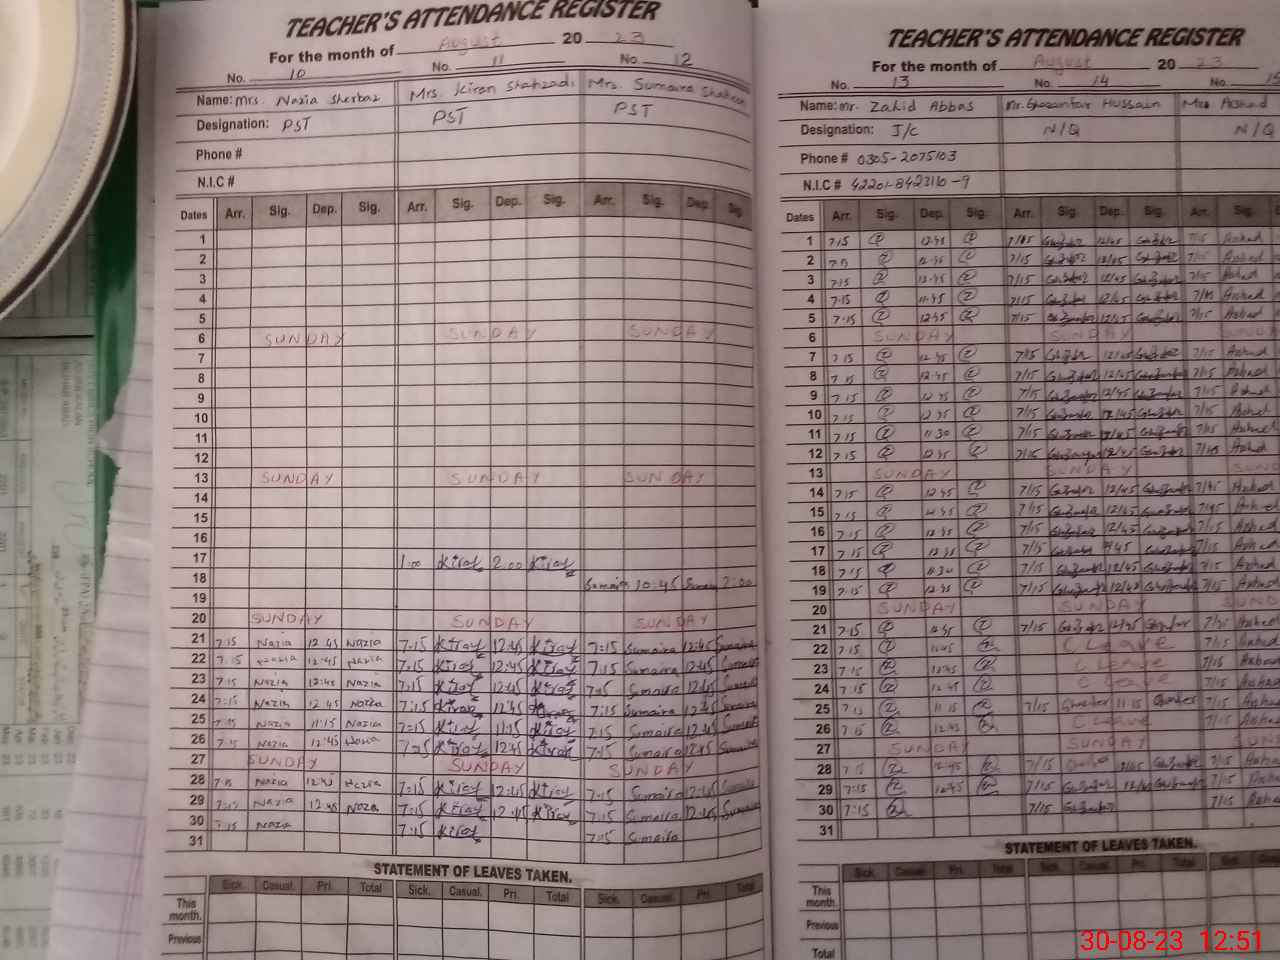 TEACHER'S ATTENDANCE REGISTER
For the month of August 20 23
No. 10 No. 11 No. 12
Name: Mrs. Nazia Sherbaz Mrs. Kiran Shahzadi Mrs. Sumaira
Designation: PST PST PST
Phone #
N.I.C #
Dates Arr. Sig. Dep. Sig. Arr. Sig. Dep. Sig. Arr. Sig. Dep. Sig.
1
2
3
4
5
6 SUNDAY SUNDAY SUNDAY
7
8
9
10
11
12
13 SUNDAY SUNDAY SUNDAY
14
15
16
17 1:00 Kiran 2:00 Kiran
18 Sumaira 10:45 Sumaira 2:00
19
20 SUNDAY SUNDAY SUNDAY
21 7:15 Nazia 12:45 Nazia 7:15 Kiran 12:45 Kiran 7:15 Sumaira 12:45 Sumaira
22 7:15 Nazia 12:45 Nazia 7:15 Kiran 12:45 Kiran 7:15 Sumaira 12:45 Sumaira
23 7:15 Nazia 12:45 Nazia 7:15 Kiran 12:45 Kiran 7:15 Sumaira 12:45 Sumaira
24 7:15 Nazia 12:45 Nazia 7:15 Kiran 12:45 Kiran 7:15 Sumaira 12:45 Sumaira
25 7:15 Nazia 11:15 Nazia 7:15 Kiran 11:15 Kiran 7:15 Sumaira 12:45 Sumaira
26 7:15 Nazia 12:45 Nazia 7:15 Kiran 12:45 Kiran 7:15 Sumaira 12:45 Sumaira
27 SUNDAY SUNDAY SUNDAY
28 7:15 Nazia 12:45 Nazia 7:15 Kiran 12:45 Kiran 7:15 Sumaira 12:45 Sumaira
29 7:15 Nazia 12:45 Nazia 7:15 Kiran 12:45 Kiran 7:15 Sumaira 12:45 Sumaira
30 7:15 Nazia 7:15 Kiran 7:15 Sumaira
31
STATEMENT OF LEAVES TAKEN.
Sick. Casual. Pri. Total Sick. Casual. Pri. Total Sick. Casual. Pri. Total
This month.
Previous
TEACHER'S ATTENDANCE REGISTER
For the month of August 20 23
No. 13 No. 14 No. 15
Name: Mr. Zahid Abbas Mr. Ghazanfar Hussain Arshad
Designation: I/C N/Q N/Q
Phone # 0305-2075103
N.I.C # 42201-8423116-9
Dates Arr. Sig. Dep. Sig. Arr. Sig. Dep. Sig. Arr. Sig.
1 7:15 12:45 7/15 12/45 7/15 Arshad
2 7:15 12:45 7/15 12/45 7/15 Arshad
3 7:15 12:45 7/15 12/45 7/15 Arshad
4 7:15 11:45 7/15 12/45 7/15 Arshad
5 7:15 12:45 7/15 12/45 7/15 Arshad
6 SUNDAY SUNDAY SUNDAY
7 7:15 12:45 7/15 12/45 7/15 Arshad
8 7:15 12:45 7/15 12/45 7/15 Arshad
9 7:15 12:45 7/15 12/45 7/15 Arshad
10 7:15 12:45 7/15 12/45 7/15 Arshad
11 7:15 11:30 7/15 12/45 7/15 Arshad
12 7:15 12:45 7/15 12/45 7/15 Arshad
13 SUNDAY SUNDAY SUND
14 7:15 12:45 7/15 12/45 7/15 Arshad
15 7:15 12:45 7/15 12/45 7/15 Arshad
16 7:15 12:45 7/15 12/45 7/15 Arshad
17 7:15 12:45 7/15 7/15 Arshad
18 7:15 11:30 7/15 12/45 7/15 Arshad
19 7:15 12:45 7/15 12/45 7/15 Arshad
20 SUNDAY SUNDAY SUND
21 7:15 12:45 7/15 12/45 7/15 Arshad
22 7:15 C Leave 7/15 Arshad
23 7:15 12:45 C Leave 7/15 Arshad
24 7:15 12:45 C Leave 7/15 Arshad
25 7:15 11:15 7/15 11:15 7/15 Arshad
26 7:15 12:45 C Leave 7/15 Arshad
27 SUNDAY SUNDAY SUN
28 7:15 12:45 7/15 12/45 7/15 Arshad
29 7:15 12:45 7/15 12/45 7/15 Arshad
30 7:15 7/15 7/15 Arshad
31
STATEMENT OF LEAVES TAKEN.
Sick. Casual. Pri. Total Sick. Casual. Pri. Total Sick.
This month.
Previous
Total
30-08-23 12:51